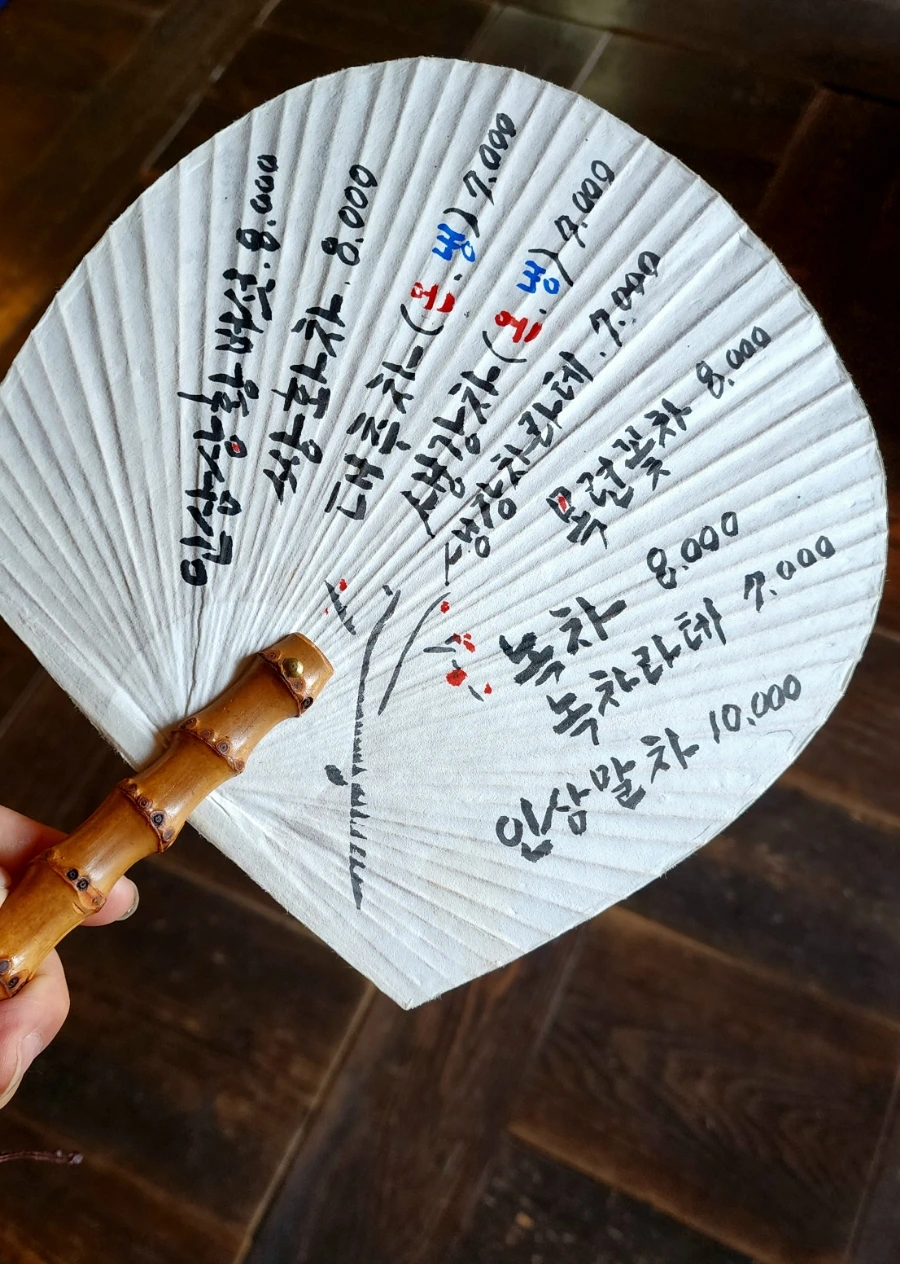 8.000
쌍화차. 8.000
대추차 (온.냉) 7.000
생강차 (온.냉) 7.000
생강차라떼. 7.000
목련꽃차 8.000
녹차 8.000
녹차라떼 7.000
인삼말차 10.000